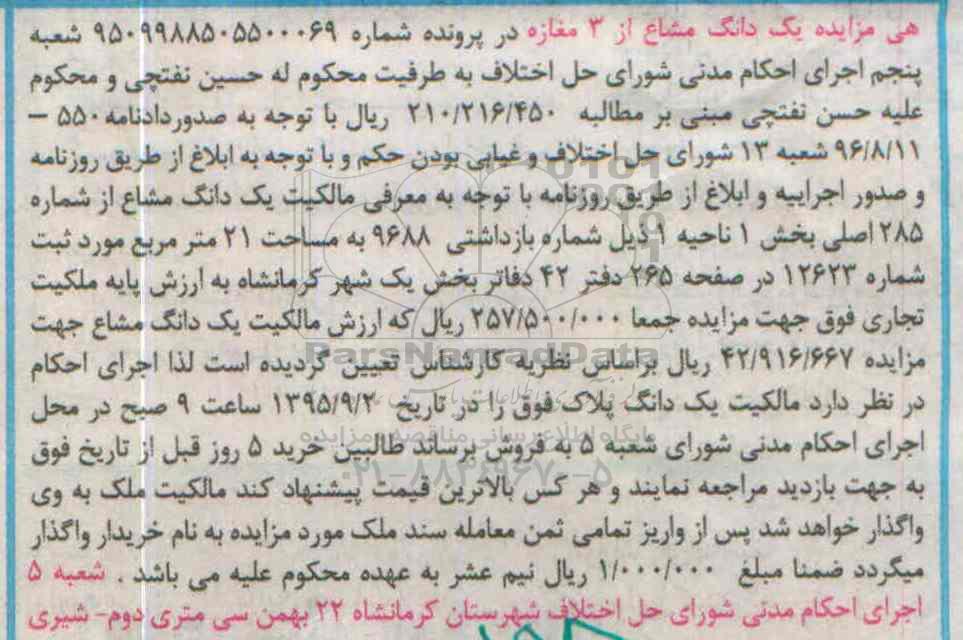 هی مزایده یک دانگ مشاع از ۳ مغازه در پرونده شماره ۹۵۰۹۹۸۸۵۰۵۵۰۰۰۶۹ شعبه
پنجم اجرای احکام مدنی شورای حل اختلاف به طرفیت محکوم له حسین نفتچی و محکوم
علیه حسن نفتچی مبنی بر مطالبه ۲۱۰/۲۱۶/۴۵۰ ریال با توجه به صدوردادنامه ۵۵۰ –
۹۶/۸/۱۱ شعبه ۱۳ شورای حل اختلاف و غیابی بودن حکم و با توجه به ابلاغ از طریق روزنامه
و صدور اجراییه و ابلاغ از طریق روزنامه با توجه به معرفی مالکیت یک دانگ مشاع از شماره
۲۸۵ اصلی بخش ۱ ناحیه ۱ ذیل شماره بازداشتی ۹۶۸۸ به مساحت ۲۱ متر مربع مورد ثبت
شماره ۱۲۶۲۳ در صفحه ۲۶۵ دفتر ۴۲ دفاتر بخش یک شهر کرمانشاه به ارزش پایه ملکیت
تجاری فوق جهت مزایده جمعا ۲۵۷/۵۰۰/۰۰۰ ریال که ارزش مالکیت یک دانگ مشاع جهت
مزایده ۴۲/۹۱۶/۶۶۷ ریال براساس نظریه کارشناس تعیین گردیده است لذا اجرای احکام
ParsNamadData
در نظر دارد مالکیت یک دانگ پلاک فوق را در تاریخ ۱۳۹۵/۹/۲۰ ساعت ۹ صبح در محل
اجرای احکام مدنی شورای شعبه ۵ به فروش برساند طالبین خرید ۵ روز قبل از تاریخ فوق
پایگاه اطلاع رسانی مناقصه و مزایده
۰۲۱-۸۸۳۴۹۶۷۰-۵
به جهت بازدید مراجعه نمایند و هر کس بالاترین قیمت پیشنهاد کند مالکیت ملک به وی
واگذار خواهد شد پس از واریز تمامی ثمن معامله سند ملک مورد مزایده به نام خریدار واگذار
میگردد ضمنا مبلغ ۱/۰۰۰/۰۰۰ ریال نیم عشر به عهده محکوم علیه می باشد . شعبه ۵
اجرای احکام مدنی شورای حل اختلاف شهرستان کرمانشاه ۲۲ بهمن سی متری دوم- شیری